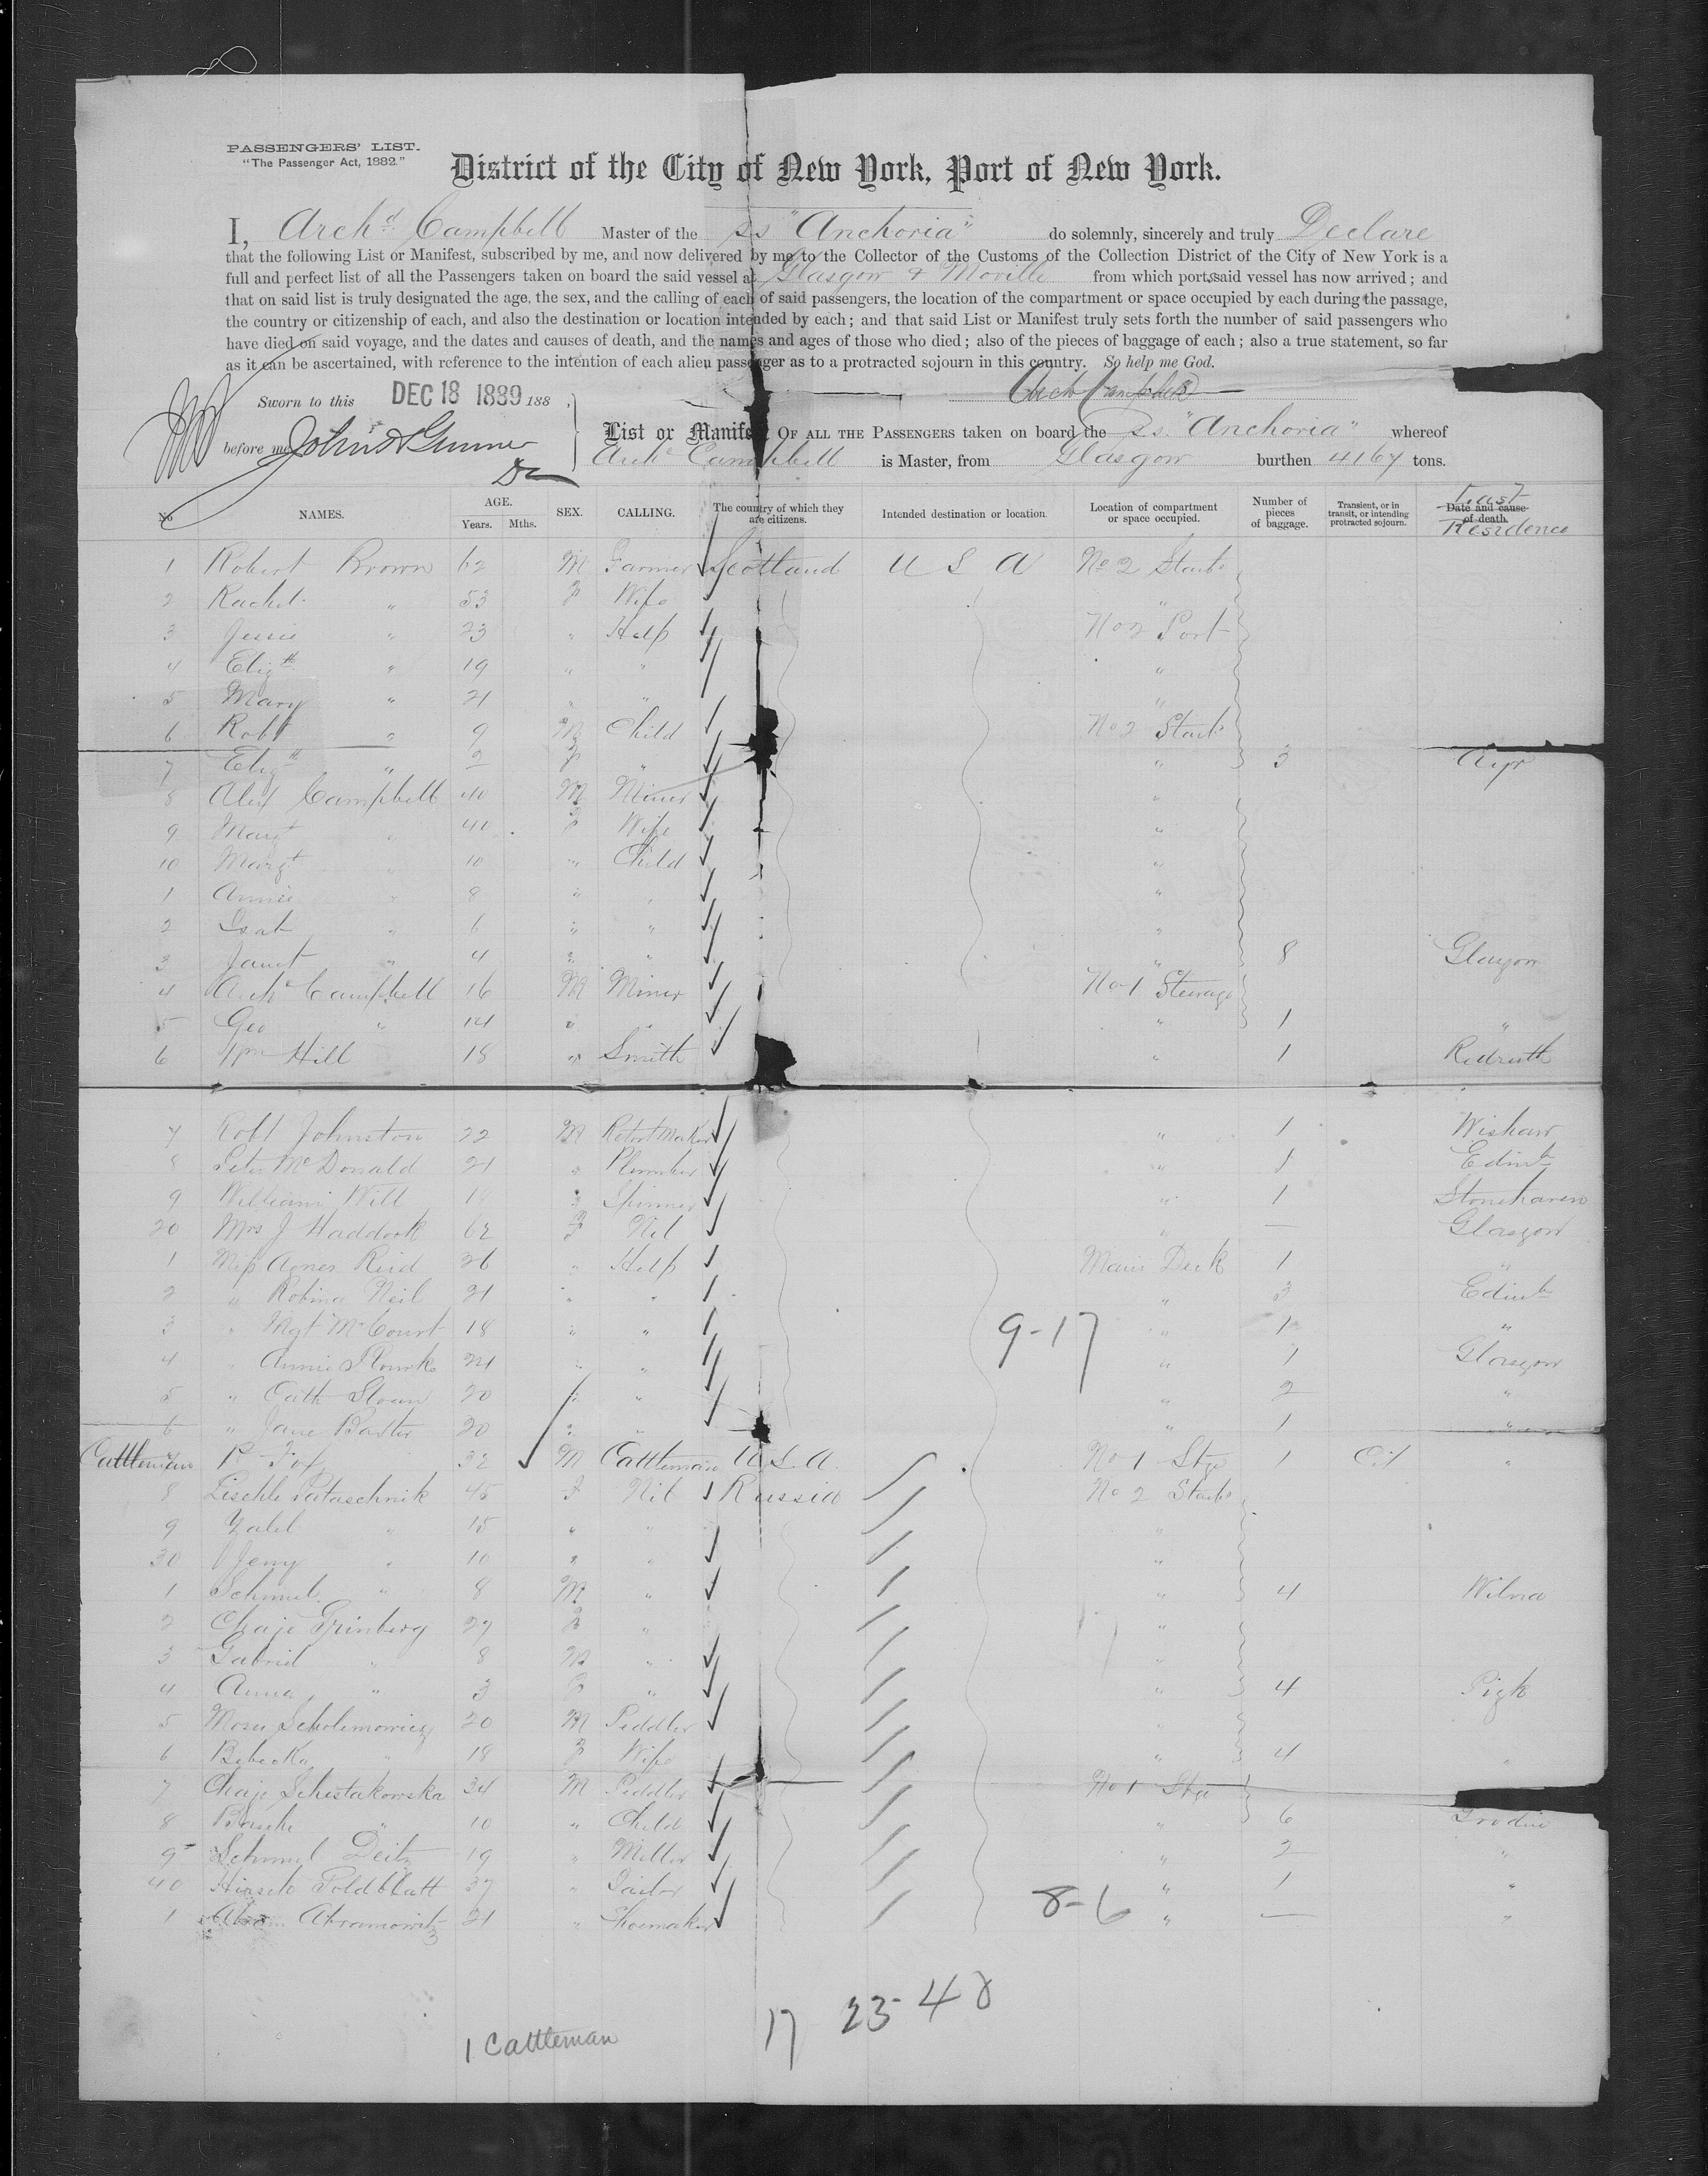 PASSENGERS' LIST.
"The Passenger Act, 1882."
District of the City of New York, Port of New York.
I, Archd Campbell Master of the SS "Anchoria" do solemnly, sincerely and truly Declare
that the following List or Manifest, subscribed by me, and now delivered by me to the Collector of the Customs of the Collection District of the City of New York is a
full and perfect list of all the Passengers taken on board the said vessel at Glasgow & Moville from which ports said vessel has now arrived; and
that on said list is truly designated the age, the sex, and the calling of each of said passengers, the location of the compartment or space occupied by each during the passage,
the country or citizenship of each, and also the destination or location intended by each; and that said List or Manifest truly sets forth the number of said passengers who
have died on said voyage, and the dates and causes of death, and the names and ages of those who died; also of the pieces of baggage of each; also a true statement, so far
as it can be ascertained, with reference to the intention of each alien passenger as to a protracted sojourn in this country. So help me God.
Arch Campbell
Sworn to this DEC 18 1889 188 ,
before me
List or Manifest OF ALL THE PASSENGERS taken on board the Ss. "Anchoria" whereof
Archd Campbell is Master, from Glasgow burthen 4167 tons.
No NAMES. AGE. Years. Mths. SEX. CALLING. The country of which they are citizens. Intended destination or location. Location of compartment or space occupied. Number of pieces of baggage. Transient, or in transit, or intending protracted sojourn. Date and cause of death. Last Residence
1 Robert Brown 62 M Farmer Scotland U S A No 2 Starb
2 Rachel " 53 F Wife "
3 Jessie " 23 " Help No 2 Port
4 Elizth " 19 " " "
5 Mary " 21 " " "
6 Robt " 9 M Child No 2 Starb
7 Elizth " 2 F " " 3 Ayr
8 Alex Campbell 40 M Miner "
9 Margt " 40 F Wife "
10 Margt " 10 " Child "
1 Annie " 8 " " "
2 Isab " 6 " " "
3 Janet " 4 " " " 8 Glasgow
4 Archd Campbell 16 M Miner No 1 Steerage
5 Geo " 14 " " " 1 "
6 Wm Hill 18 " Smith " 1 Redruth
7 Robt Johnston 22 M " 1 Wishaw
8 Peter McDonald 21 " Plumber " 1 Edinb
9 William Will " Spinner " 1 Stonehaven
20 Mrs J Haddock 62 F Nil " — Glasgow
1 Miss Agnes Reid 26 " Help Main Deck 1 "
2 " Robina Neil 21 " " " 3 Edinb
3 " Mgt McCourt 18 " " 9-17 " 1 "
4 " Annie 24 " " " 1 Glasgow
5 " Cath Sloan 20 " " " 2 "
6 " Jane Baxter 20 " " " 1 "
Cattleman P Fox 32 M Cattleman U.S.A. No 1 Stge 1 Cit "
8 Lischle Pataschnik 45 F Nil Russia No 2 Starb
9 " 15 " " "
30 Jeny " 10 " " "
1 Schmul " 8 M " " 4 Wilna
2 Chaje Grinberg 27 F " "
3 Gabriel " 8 M " "
4 Anna " 3 F " " 4
5 Moses Scholemowicz 20 M Peddler "
6 Rebecka " 18 F Wife " 4 "
7 Chaje Schestakowska 34 M Peddler No 1 Stge
8 " 10 " Child " 6
9 Schmul Deitz 19 " Miller " 2 "
40 Hirsch Goldblatt 37 " Tailor " 1 "
1 Abramowitz 21 " Shoemaker 8-6 " — "
17 23-40
1 Cattleman